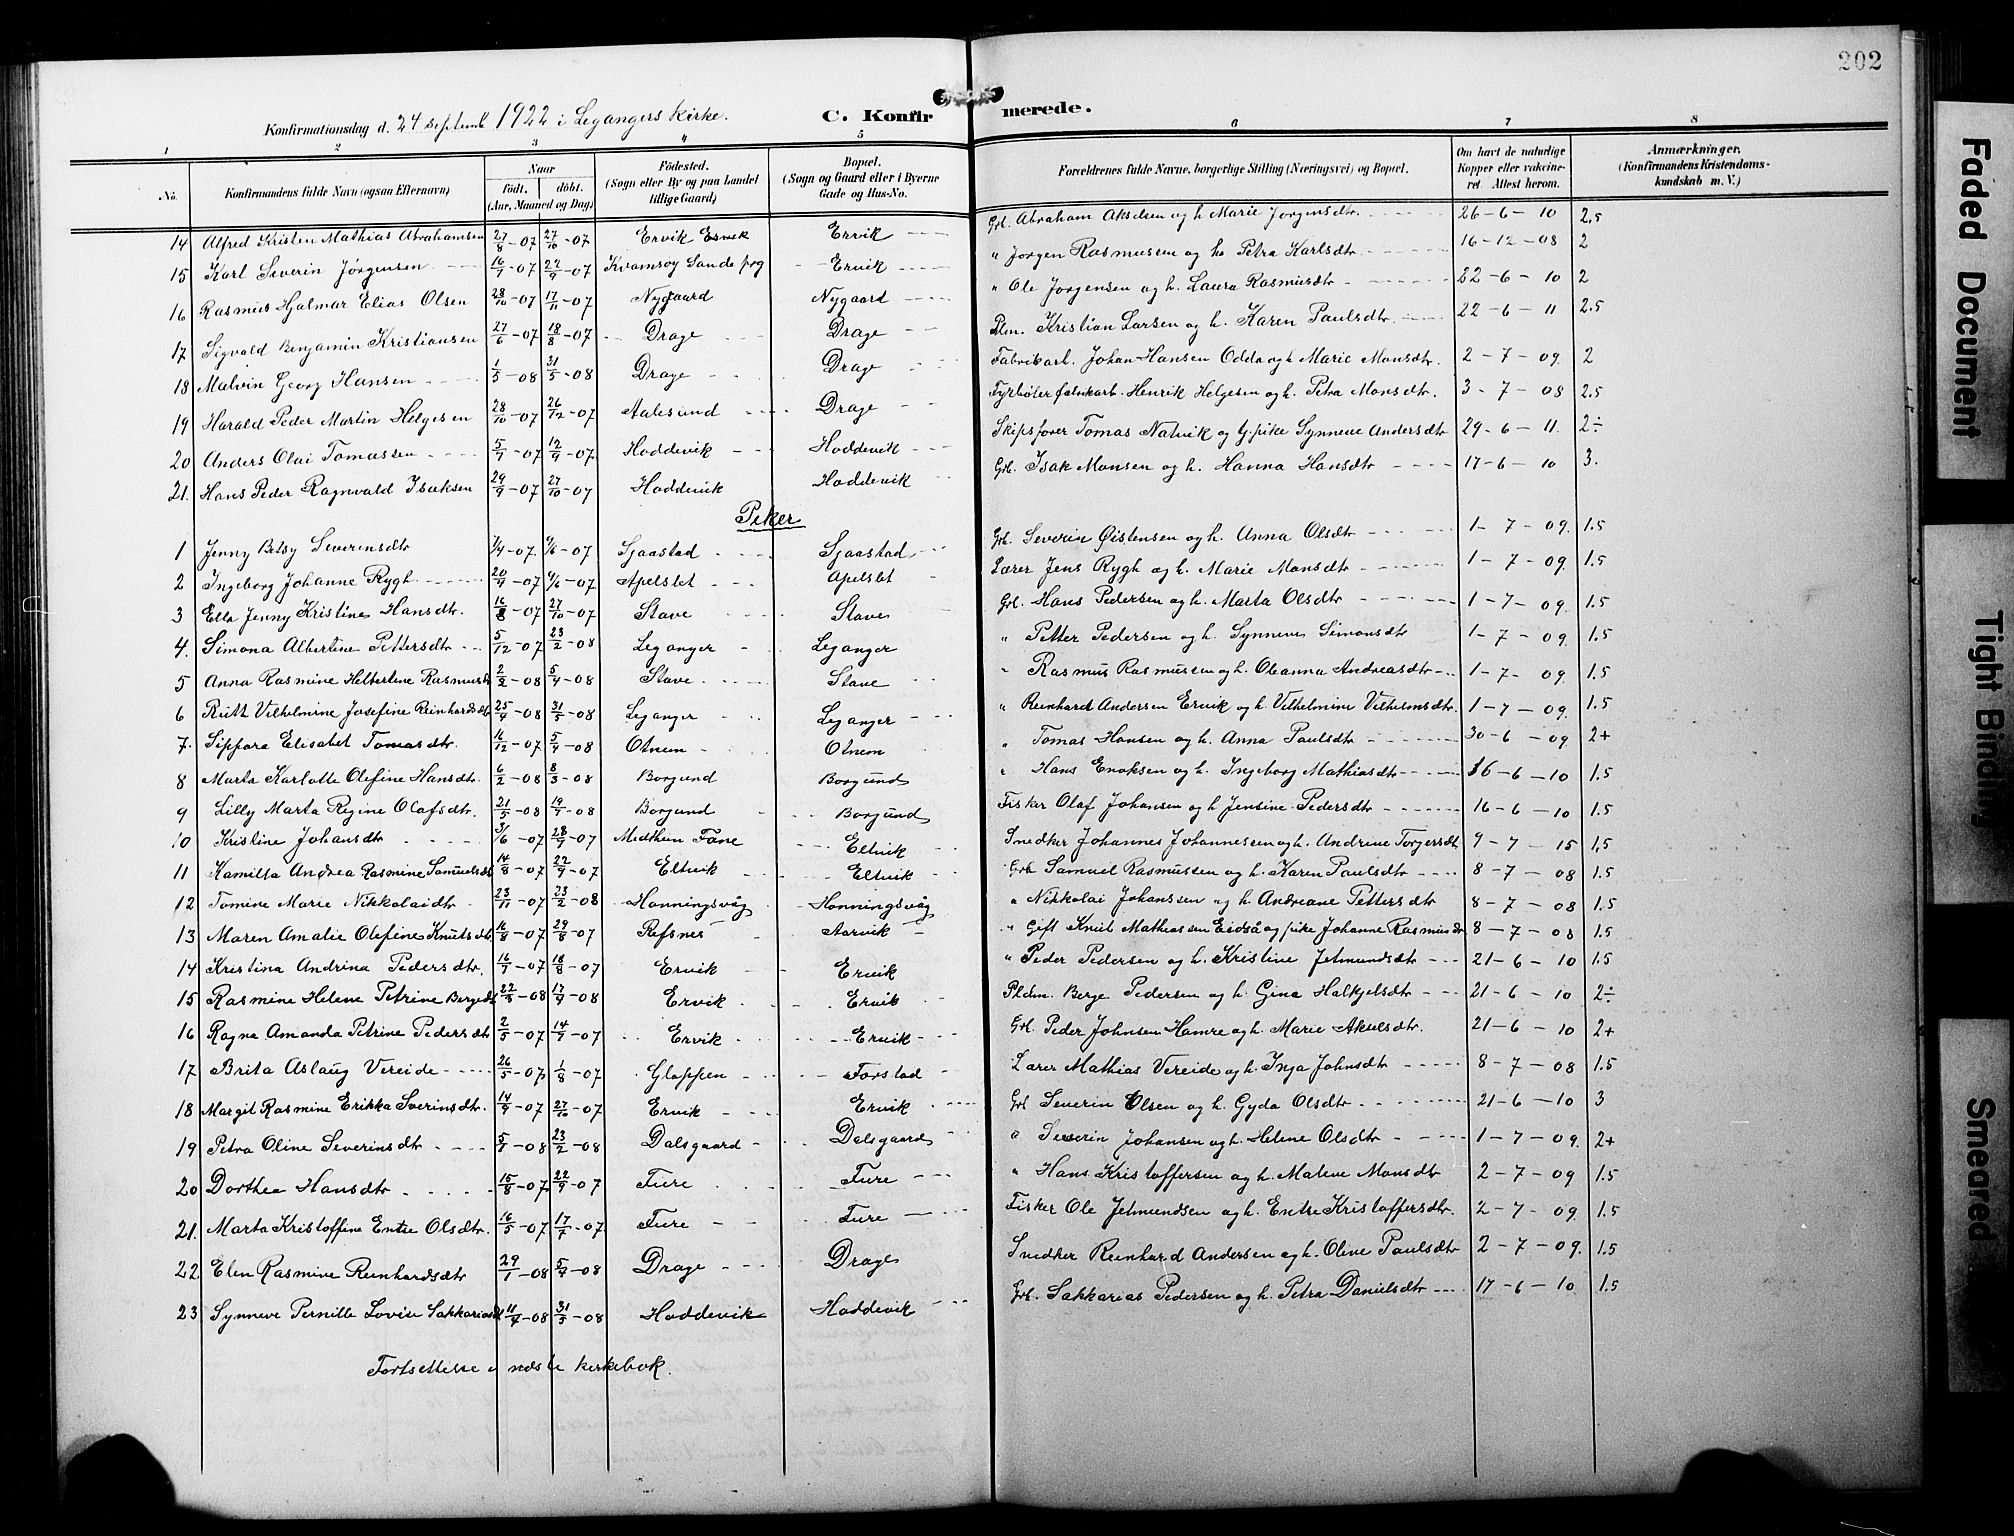 202
Konfirmationsdag d. 24 septemb 1922 i Legangers Kirke.
C. Konfirmerede.
1 2 3 4 5 6 7 8
No. Konfirmandens fulde Navn (ogsaa Efternavn) Naar födt. döbt. (Aar, Maaned og Dag) Födested. (Sogn eller By og paa Landet tillige Gaard) Bopæl. (Sogn og Gaard eller i Byerne Gade og Hus-No. Forældrenes fulde Navne, borgerlige Stilling (Næringsvei) og Bopæl. Om havt de naturlige Kopper eller vakcineret. Attest herom. Anmærkninger. (Konfirmandens Kristendomskundskab m. V.)
14 Alfred Kristen Mathias Abrahamsen 27/8-07 27/10-07 Ervik Ervik Grb. Abraham Akselsen og h. Marie Jorgensdtr. 26-6-10 2.5
15 Karl Severin Jörgensen 16/7-07 22/9-07 Kvamsoy Sande prg Ervik " Jorgen Rasmussen og h. Petra Karlsdtr 16-12-08 2
16 Rasmus Hjalmar Elias Olsen 28/10-07 17/11-07 Nygaard Nygaard " Ole Jorgensen og h. Laura Rasmusdtr 22-6-10 2
17 Sigvald Benjamin Kristiansen 27/6-07 18/8-07 Drage Drage Plm. Kristian Larsen og h. Karen Paulsdtr. 22-6-11 2.5
18 Malvin Georg Hansen 1/5-08 31/5-08 Drage Drage Fabrikarb. Johan Hansen Odda og h Marie Monsdtr. 2-7-09. 2
19 Harald Peder Martin Helgesen 28/10-07 26/12-07 Aalesund Drage Fyrböter Henrik Helgesen og h. Petra Monsdtr. 3-7-08 2.5
20 Anders Olai Tomassen 5/7-07 12/9-07. Hoddevik Hoddevik Skipsförer Tomas Natvik og G. pike Synneve Andersdtr 29-6-11. 2÷
21. Hans Peder Ragnvald Isaksen 29/9-07 27/10-07 Hoddevik Hoddevik Grb. Isak Monsen og h. Hanna Hansdtr 17-6-10 3.
Piker
1 Jenny Betsy Severinsdtr 7/4-07. 9/6-07 Sjaastad Sjaastad Grb. Severin Øistensen og h. Anna Olsdtr 1-7-09. 1.5
2 Ingeborg Johanne Rygh 20/4-07 9/6-07. Apelset Apelset Lærer Jens Rygh og h. Marie Monsdtr 1-7-09. 1.5
3 Ella Jenny Kristine Hansdtr. 16/8-07 27/10-07 Stave Stave Grb. Hans Pedersen og h. Marta Olsdtr 1-7-09. 1.5
4. Simona Albertine Pettersdtr 5/12-07 23/2-08 Leganger Leganger " Petter Pedersen og h. Synneve Simonsdtr 1-7-09. 1.5
5 Anna Rasmine Heltertine Rasmusdt 2/2-08 5/4-08 Stave Stave " Rasmus Rasmussen og h. Oleanna Andreasdtr 1-7-09. 1.5
6 Ruth Vilhelmine Josefine Reinhardsdt 25/4-08 31/5-08 Leganger Leganger " Reinhard Andersen Ervik og h Vilhelmine Vilhelmsdtr. 1-7-09. 1.5
7. Sippora Elisabet Tomasdtr. 16/12-07 5/4-08 Otnem Otnem " Tomas Hansen og h. Anna Paulsdtr 30-6-09. 2+
8 Marta Karlotte Olefine Hansdtr. 6/2-08 8/3-08 Borgund Borgund " Hans Enoksen og h. Ingeborg Mathiasdtr 16-6-10 1.5
9 Lilly Marta Regine Olafsdtr. 21/5-08 19/7-08 Borgund Borgund Fisker Olaf Johansen og h Jensine Pedersdtr 16-6-10 1.5
10 Kristine Johansdtr 3/6-07 28/7-07 Midthun Fane Eltvik Snedker Johannes Johannessen og h. Andrine Torgersdt 9-7-15 1,5
11 Kamilta Andrea Rasmine Samuelsdt 14/8-07 22/9-07 Eltvik Eltvik Grb Samuel Rasmussen og h. Karen Paulsdtr 8-7-08 1.5
12 Tomine Marie Nikkolaidtr 23/11-07 23/2-08 Honningsvåg Honningsvåg " Nikkolai Johanssen og h Andreane Pettersdtr 8-7-08 1.5
13 Maren Amalie Olefine Knutsdt. 16/8-07 29/8-07 Refsnes Aarvik " Gift Knut Mathiassen Eidså og pike Johanne Rasmusdr 8-7-08 1.5
14 Kristina Andrina Pedersdtr. 16/7-07 18/8-07 Ervik Ervik " Peder Pedersen og h. Kristine Jetmundsdtr 21-6-10 1.5
15 Rasmine Helene Petrine Bergedt 22/8-08 17/9-08 Ervik Ervik Pldm. Berge Pedersen og h. Gina Halkjelsdtr 21-6-10 2÷
16 Ragna Amanda Petrine Pedersdtr 2/5-07 14/7-07 Ervik Ervik Grb. Peder Johnsen Hamre og h. Marie Akselsdtr. 21-6-10 2+
17 Brita Aslaug Vereide 26/5-07 1/8-07 Gloppen Forstad Lærer Mathias Vereide og h. Inga Johnsdtr 8-7-08 1.5
18 Margit Rasmine Erikka Sverinsdtr. 14/9-07 27/10-07 Ervik Ervik Grb Severin Olsen og h. Gyda Olsdtr 21-6-10 3
19 Petra Oline Severinsdtr 5/1-08 23/2-08 Dalsgaard Dalsgaard " Severin Johansen og h. Helene Olsdtr 1-7-09. 2+
20 Dorthea Hansdtr 15/8-07 22/9-07 Fure Fure " Hans Kristoffersen og h. Malene Monsdtr 2-7-09 1.5
21. Marta Kristoffine Entre Olsdtr. 16/5-07 17/7-07 Fure Fure Fisker Ole Jetmundsen og h. Entre Kristoffersdtr. 2-7-09. 1.5
22 Elen Rasmine Reinhardsdtr 29/1-08 5/4-08 Drage Drage Snedker Reinhard Andersen og h. Oline Paulsdtr 2-7-09. 1.5
23 Synneve Pernille Lovise Sakkariasdt 11/4-08 31/5-08 Hoddevik Hoddevik Grb. Sakkarias Pedersen og h. Petra Danielsdtr 17-6-10 1.5
Fortsettelse i næste kirkebok.
Faded Document
Tight Binding
Smeared